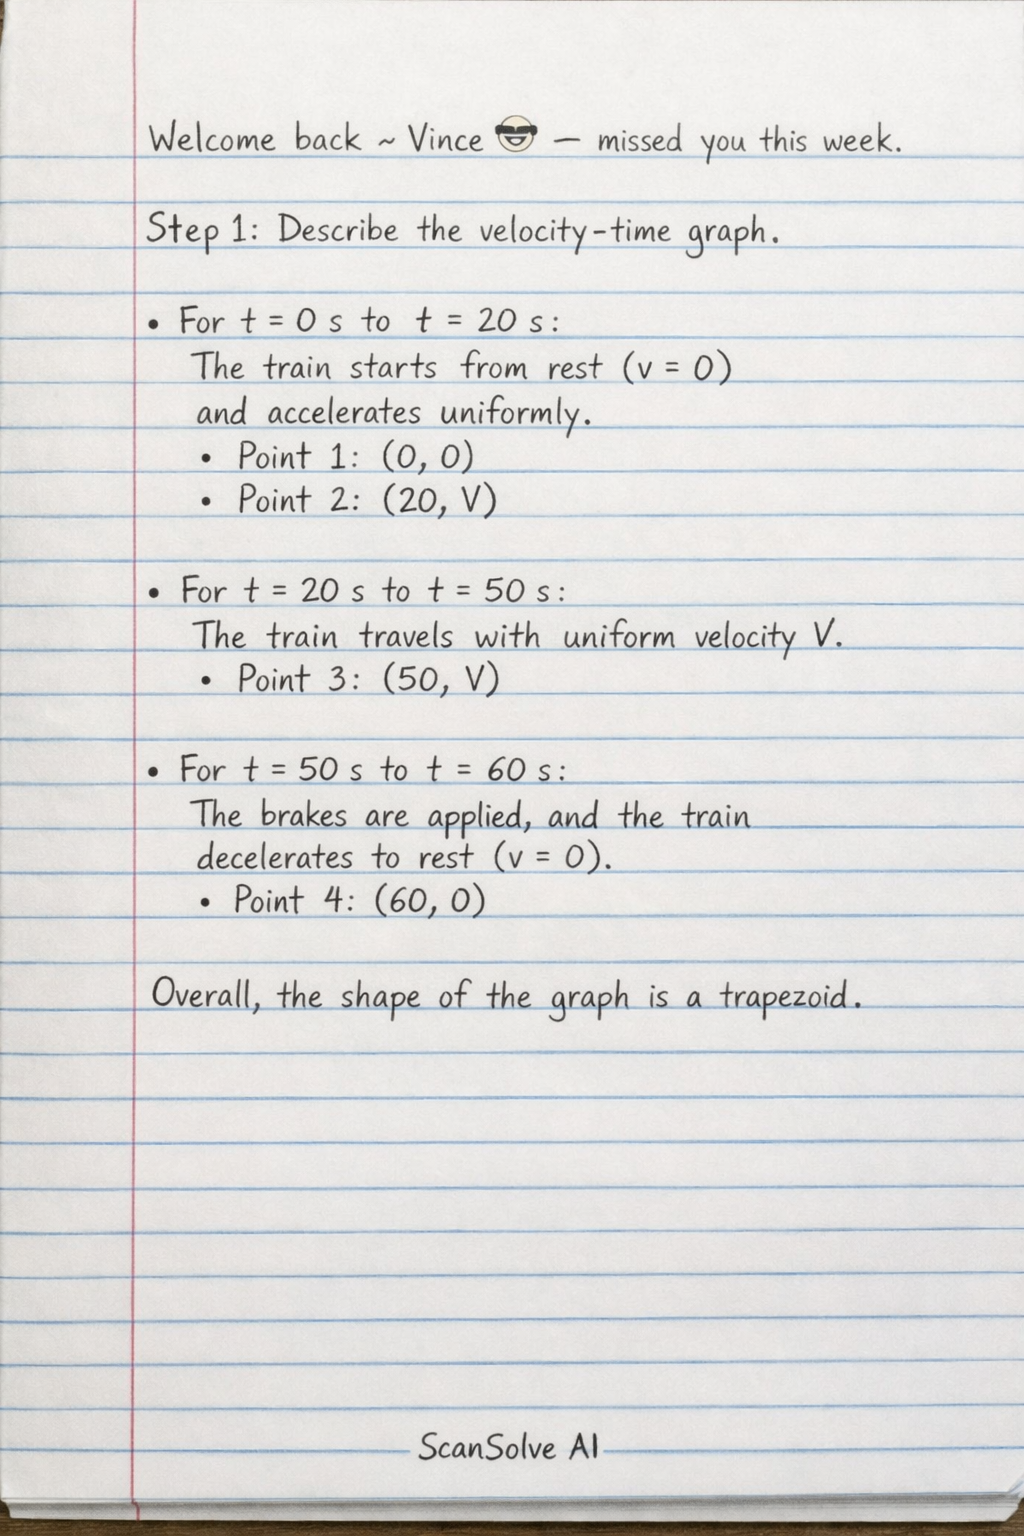 Welcome back ~ Vince 😎 — missed you this week.
Step 1: Describe the velocity-time graph.
• For t = 0 s to t = 20 s:
The train starts from rest (v = 0)
and accelerates uniformly.
• Point 1: (0, 0)
• Point 2: (20, V)
• For t = 20 s to t = 50 s:
The train travels with uniform velocity V.
• Point 3: (50, V)
• For t = 50 s to t = 60 s:
The brakes are applied, and the train
decelerates to rest (v = 0).
• Point 4: (60, 0)
Overall, the shape of the graph is a trapezoid.
ScanSolve AI